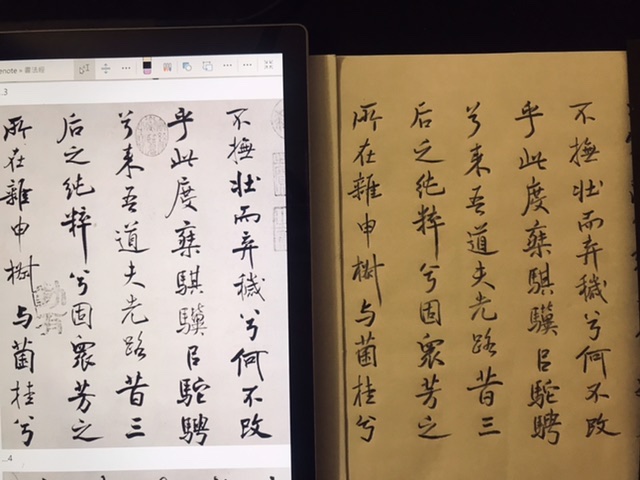 ...3
不撫壮而弃穢兮何不改
乎此度椉騏驥㠯駝騁
兮来吾道夫先路昔三
后之純粹兮固衆芳之
所在雜申樹与菌桂兮
...4
不撫壮而弃穢兮何不改
乎此度椉騏驥㠯駝騁
兮来吾道夫先路昔三
后之純粹兮固衆芳之
所在雜申樹与菌桂兮